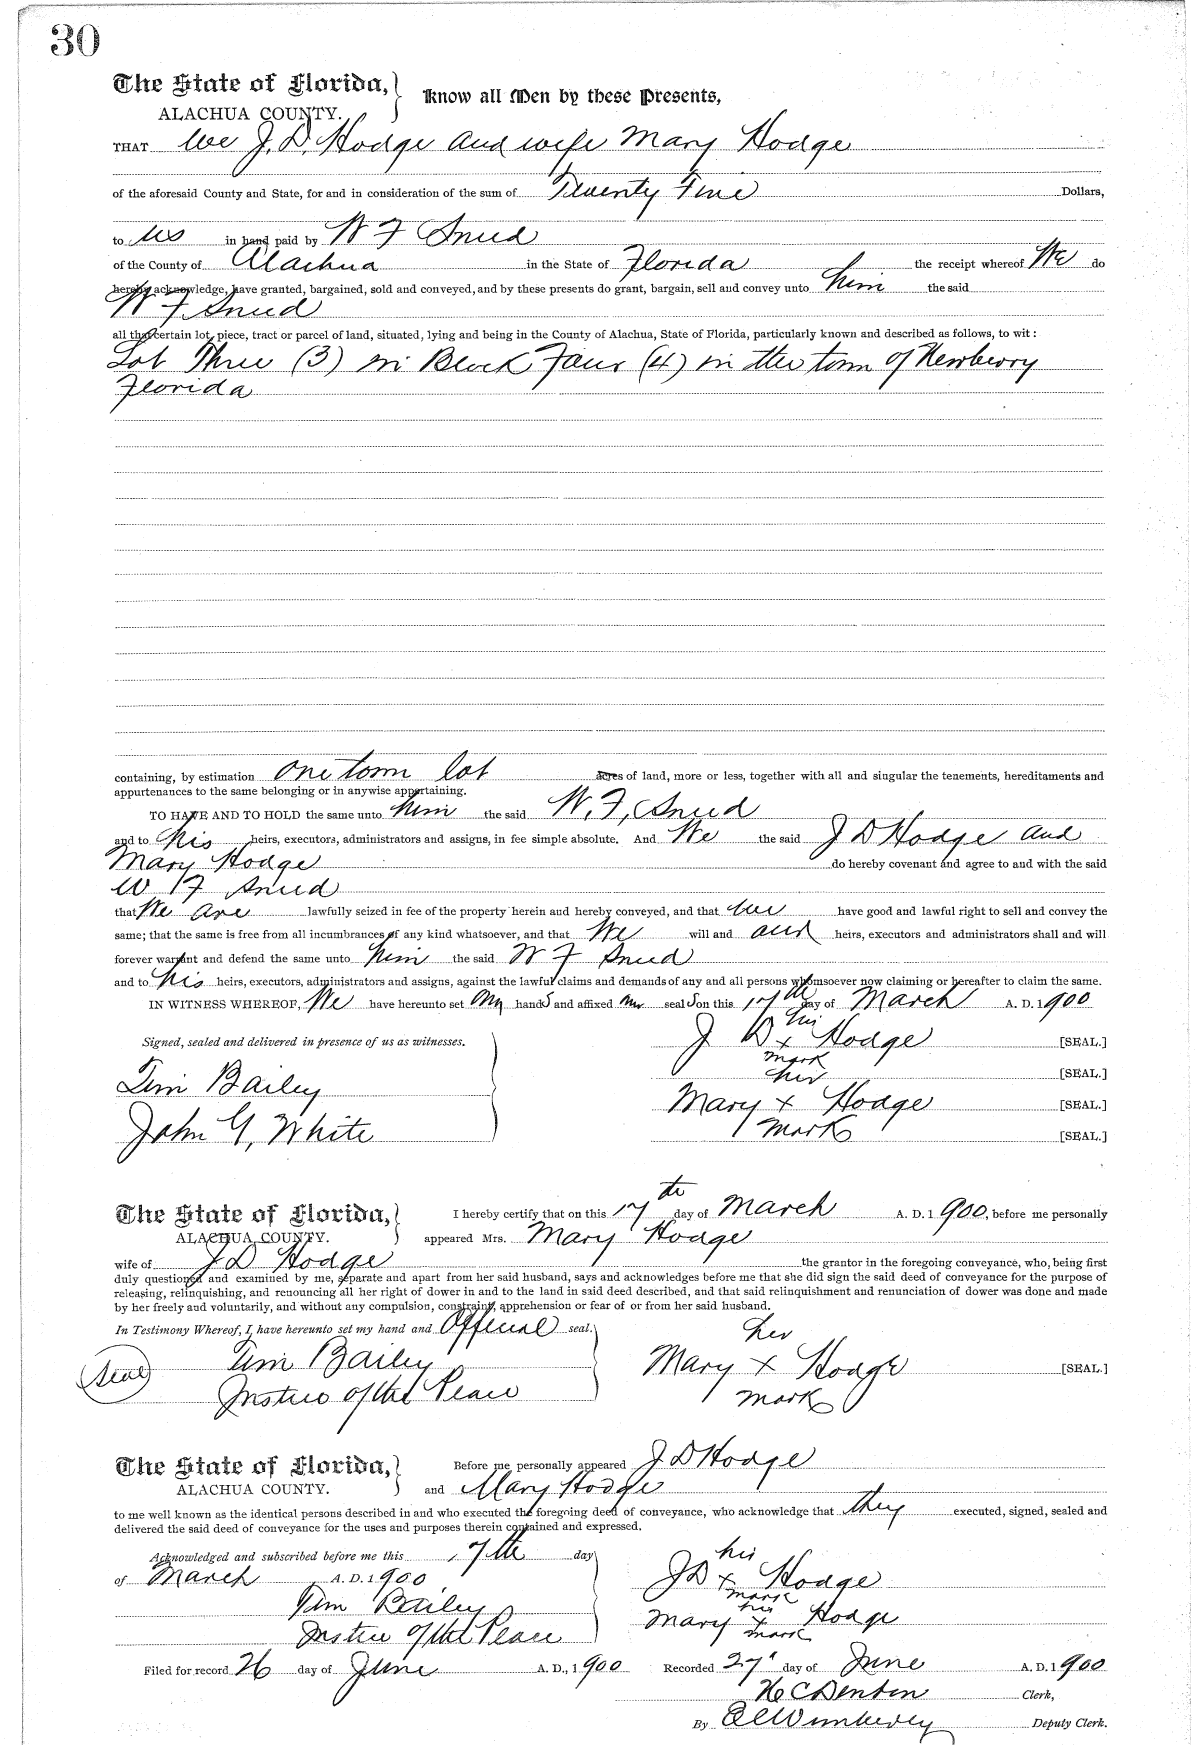 30
The State of Florida,
ALACHUA COUNTY.
Know all Men by these Presents,
THAT We J. D. Hodge and wife Mary Hodge
of the aforesaid County and State, for and in consideration of the sum of Twenty Five Dollars,
to us in hand paid by W F Sneed
of the County of Alachua in the State of Florida the receipt whereof We do
hereby acknowledge, have granted, bargained, sold and conveyed, and by these presents do grant, bargain, sell and convey unto him the said
W F Sneed
all that certain lot, piece, tract or parcel of land, situated, lying and being in the County of Alachua, State of Florida, particularly known and described as follows, to wit:
Lot Three (3) in Block Four (4) in the town of Newberry
Florida
containing, by estimation one town lot acres of land, more or less, together with all and singular the tenements, hereditaments and
appurtenances to the same belonging or in anywise appertaining.
TO HAVE AND TO HOLD the same unto him the said W. F. Sneed
and to his heirs, executors, administrators and assigns, in fee simple absolute. And We the said J D Hodge and
Mary Hodge do hereby covenant and agree to and with the said
W F Sneed
that We are lawfully seized in fee of the property herein and hereby conveyed, and that we have good and lawful right to sell and convey the
same; that the same is free from all incumbrances of any kind whatsoever, and that We will and our heirs, executors and administrators shall and will
forever warrant and defend the same unto him the said W F Sneed
and to his heirs, executors, administrators and assigns, against the lawful claims and demands of any and all persons whomsoever now claiming or hereafter to claim the same.
IN WITNESS WHEREOF, We have hereunto set my hands and affixed seals on this 17th day of March A. D. 1900
Signed, sealed and delivered in presence of us as witnesses.
his
J D x Hodge [SEAL.]
mark
her [SEAL.]
Tim Bailey
Mary x Hodge [SEAL.]
John G. White
mark [SEAL.]
The State of Florida,
ALACHUA COUNTY.
I hereby certify that on this 17th day of March A. D. 1900, before me personally
appeared Mrs. Mary Hodge
wife of J D Hodge the grantor in the foregoing conveyance, who, being first
duly questioned and examined by me, separate and apart from her said husband, says and acknowledges before me that she did sign the said deed of conveyance for the purpose of
releasing, relinquishing, and renouncing all her right of dower in and to the land in said deed described, and that said relinquishment and renunciation of dower was done and made
by her freely and voluntarily, and without any compulsion, constraint, apprehension or fear of or from her said husband.
In Testimony Whereof, I have hereunto set my hand and Official seal.
her
(Seal) Tim Bailey
Mary x Hodge [SEAL.]
Justice of the Peace
mark
The State of Florida,
ALACHUA COUNTY.
Before me personally appeared J D Hodge
and Mary Hodge
to me well known as the identical persons described in and who executed the foregoing deed of conveyance, who acknowledge that they executed, signed, sealed and
delivered the said deed of conveyance for the uses and purposes therein contained and expressed.
Acknowledged and subscribed before me this 17th day
of March A. D. 1900
his
J D x Hodge
mark
Tim Bailey
Justice of the Peace
Mary x Hodge
mark
Filed for record 26 day of June A. D., 1900 Recorded 27" day of June A. D. 1900
H C Denton Clerk,
By Wimberly Deputy Clerk.